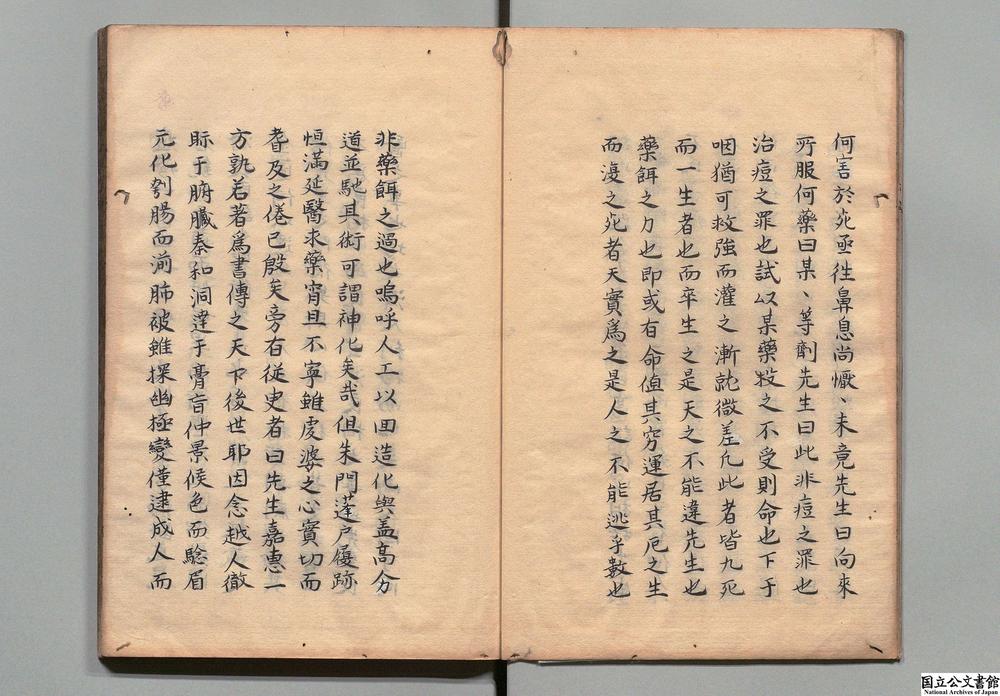 何害於死亟往鼻息尚懨〻未竟先生曰向來
所服何藥曰某〻等劑先生曰此非痘之罪也
治痘之罪也試以某藥投之不受則命也下于
咽猶可救強而灌之漸就微差凡此者皆九死
而一生者也而卒生之是天之不能違先生也
藥餌之力也即或有命值其窮運居其厄之生
而漫之死者天實為之是人之不能逃乎數也
非藥餌之過也嗚呼人工以囬造化與盖高分
道並馳其術可謂神化矣哉但朱門蓬戶履跡
恒滿延醫求藥宵旦不寧雖䖍婆之心實切而
耆及之倦已殷矣旁有從史者曰先生嘉惠一
方孰若著為書傳之天下後世耶因念越人徹
眎于腑臟秦和洞達于膏肓仲景候色而驗眉
元化刳腸而湔肺被雖探幽極變僅逮成人而
国立公文書館
National Archives of Japan